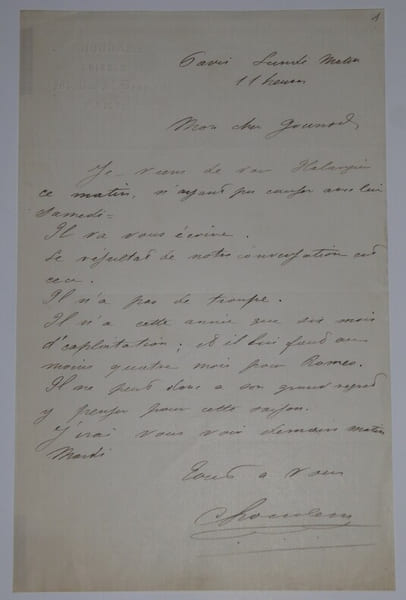 1
Paris Lundi Matin
11 heures
Mon cher Gounod,
Je viens de voir Halanzier
ce matin, n'ayant pu causer avec lui
Samedi =
Il va vous écrire.
Le résultat de notre conversation est
ceci.
Il n'a pas de troupe.
Il n'a cette année que six mois
d'exploitation ; et il lui faut au
moins quatre mois pour Romeo.
Il ne peut donc a son grand regret
y penser pour cette saison.
J'irai vous voir demain matin
Mardi
Tout a vous
Choudens